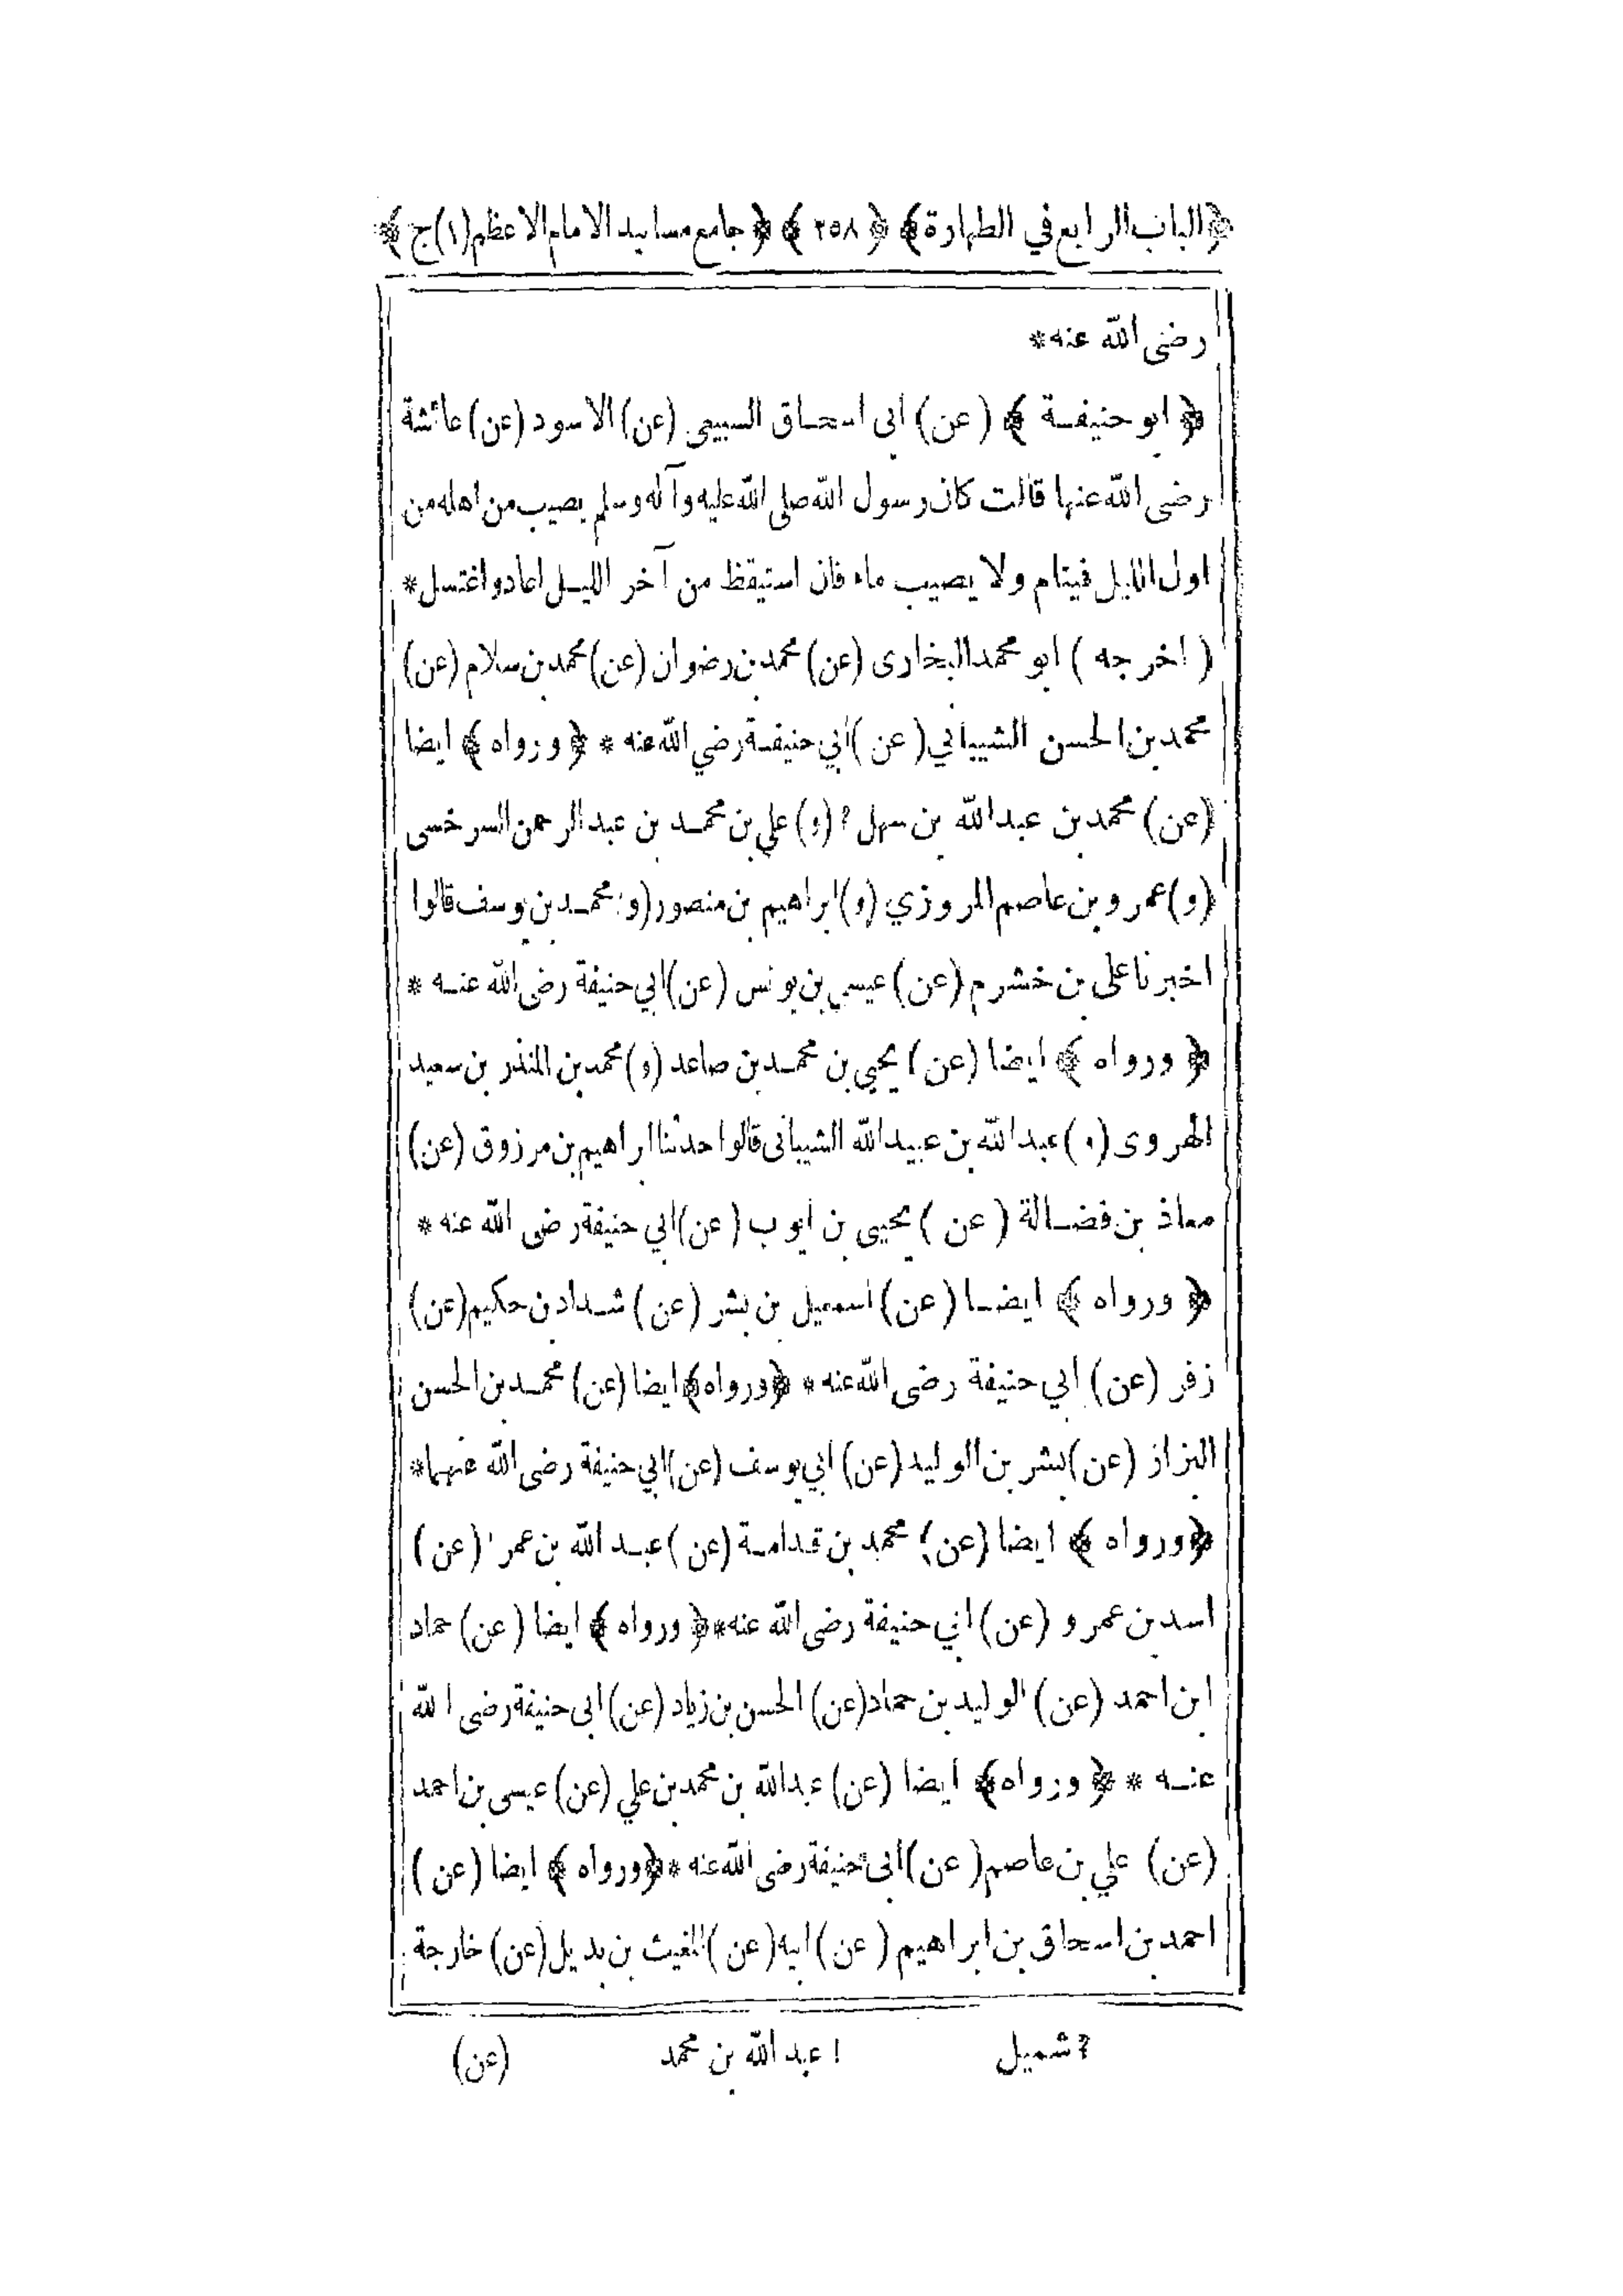 ﴿الباب الرابع في الطهارة﴾ ﴿٢٥٨﴾ ﴿جامع مسانيد الامام الاعظم (١) ج﴾
رضى الله عنه*
﴿ابو حنيفة﴾ (عن) ابى اسحاق السبيعى (عن) الاسود (عن) عائشة
رضى الله عنها قالت كان رسول الله صلى الله عليه وآله وسلم يصيب من اهله من
اول الليل فينام ولا يصيب ماء فان استيقظ من آخر الليل اعاد واغتسل*
(اخرجه) ابو محمد البخارى (عن) محمد بن رضوان (عن) محمد بن سلام (عن)
محمد بن الحسن الشيباني (عن) ابي حنيفة رضي الله عنه * ﴿ورواه﴾ ايضا
(عن) محمد بن عبد الله بن سهل ? (و) علي بن محمد بن عبد الرحمن السرخسى
(و) عمرو بن عاصم المروزي (و) ابراهيم بن منصور (و) محمد بن يوسف قالوا
اخبرنا على بن خشرم (عن) عيسى بن يونس (عن) ابي حنيفة رضى الله عنه *
﴿ورواه﴾ ايضا (عن) يحيى بن محمد بن صاعد (و) محمد بن المنذر بن سعيد
الهروى (و) عبد الله بن عبيد الله الشيبانى قالوا حدثنا ابراهيم بن مرزوق (عن)
معاذ بن فضالة (عن) يحيى بن ايوب (عن) ابي حنيفة رضى الله عنه *
﴿ورواه﴾ ايضا (عن) اسمعيل بن بشر (عن) شداد بن حكيم (عن)
زفر (عن) ابي حنيفة رضى الله عنه * ﴿ورواه﴾ ايضا (عن) محمد بن الحسن
البزاز (عن) بشر بن الوليد (عن) ابي يوسف (عن) ابي حنيفة رضى الله عنهما*
﴿ورواه﴾ ايضا (عن) محمد بن قدامة (عن) عبد الله بن عمر ا (عن)
اسد بن عمرو (عن) ابي حنيفة رضى الله عنه *﴿ورواه﴾ ايضا (عن) حماد
ابن احمد (عن) الوليد بن حماد (عن) الحسن بن زياد (عن) ابى حنيفة رضى الله
عنه * ﴿ورواه﴾ ايضا (عن) عبد الله بن محمد بن علي (عن) عيسى بن احمد
(عن) علي بن عاصم (عن) ابى حنيفة رضى الله عنه *﴿ورواه﴾ ايضا (عن)
احمد بن اسحاق بن ابراهيم (عن) ابيه (عن) المغيث بن بديل (عن) خارجة
? شميل ا عبد الله بن محمد (عن)